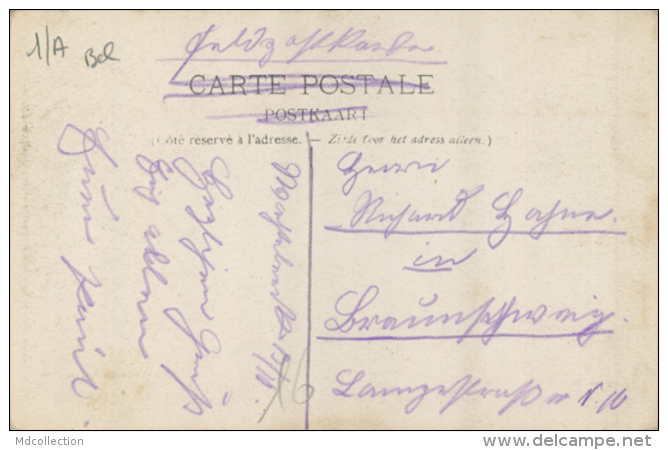 1/A Bel
Feldpostkarte
CARTE POSTALE
POSTKAART
(Côté réservé à l'adresse. — Zijde voor het adress alleen.)
Herrn
Richard Hahne.
in
Braunschweig.
Langestrasse N. 10
Herzlichen Gruß
Euch allen
Mdcollection
delcampe.net